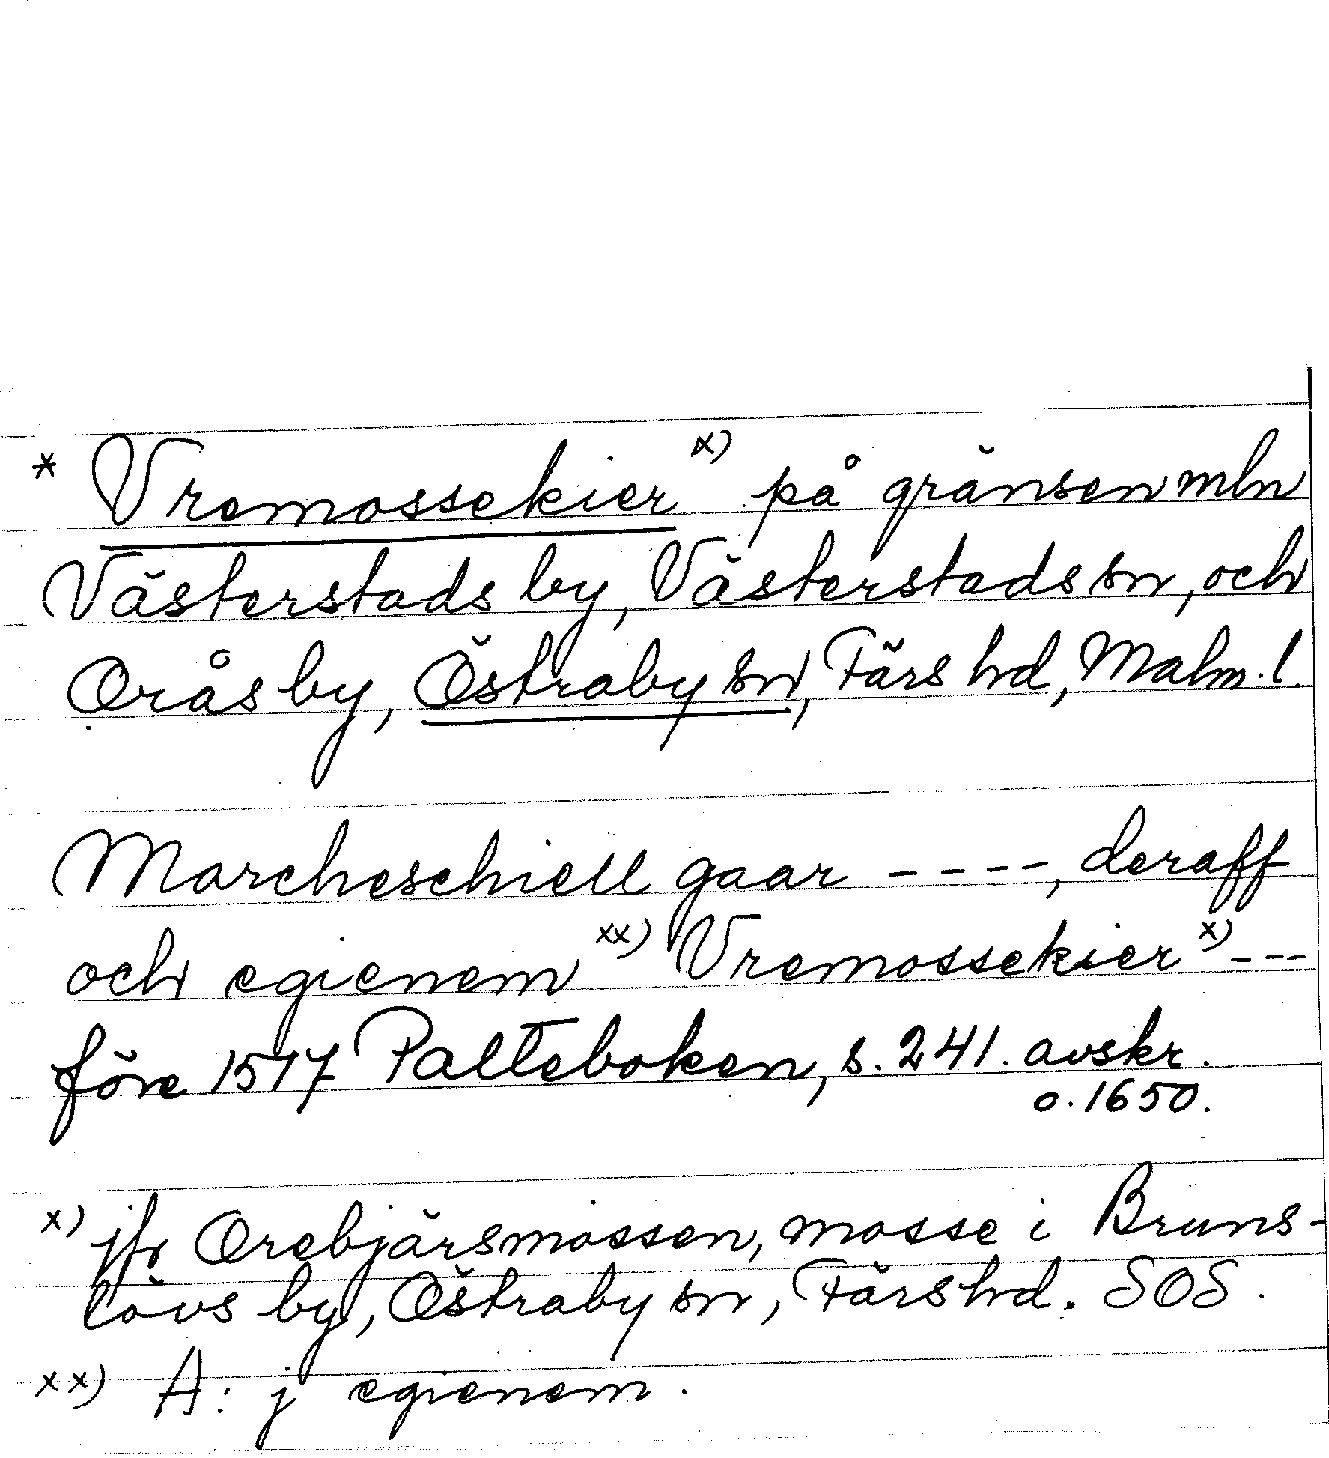 * Vremossekier x) på gränsen mln
Västerstads by, Västerstads sn, och
Oråsby, Östraby sn, Färs hd, Malm. l.
Marcheschiell gaar ----, deraff
och egienem xx) Vremossekier x) ---
före 1517 Palteboken, s. 241. avskr.
o. 1650.
x) jfr Orebjärsmossen, mosse i Bruns-
lövs by, Östraby sn, Färs hd. SOS.
xx) A: j egienem.